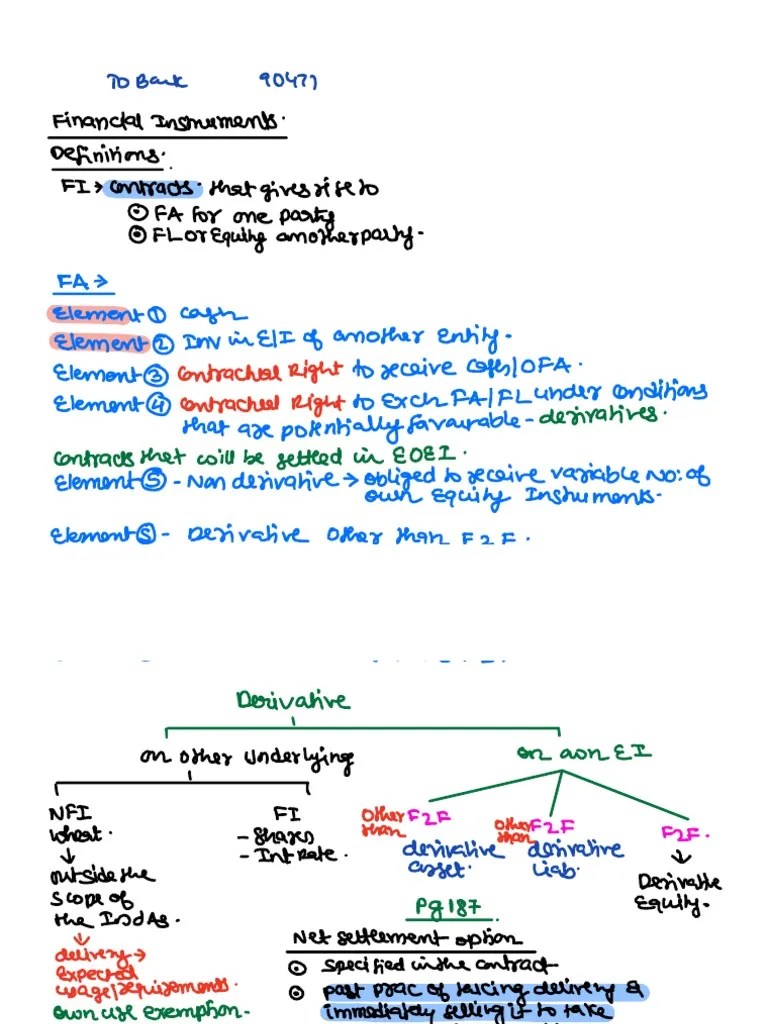 TO Bank 90471
Financial Instruments.
Definitions.
FI → contracts. that gives rise to
① FA for one party
② FL or Equity another party.
FA →
Element ① cash
Element ② Inv in E/I of another Entity.
Element ③ contractual Right to receive cash/OFA.
Element ④ contractual Right to Exch FA/FL under conditions
that are potentially favourable - derivatives.
contracts that will be settled in EOEI.
Element ⑤ - Non derivative → obliged to receive variable No: of
own Equity Instuments.
Element ⑤ - Derivative other than F2F.
Derivative
on other underlying
on own EI
NFI
wheat.
↓
outside the
scope of
the IndAs.
↓
delivery →
Expected
usage/requirements.
own use exemption.
FI
- shares
- Int Rate.
other than F2F
derivative
asset.
other than F2F
derivative
Liab.
F2F.
↓
Derivative
Equity.
Pg 187
Net settlement option
① specified in the contract
② past prac of taking delivery &
immediately selling it to take